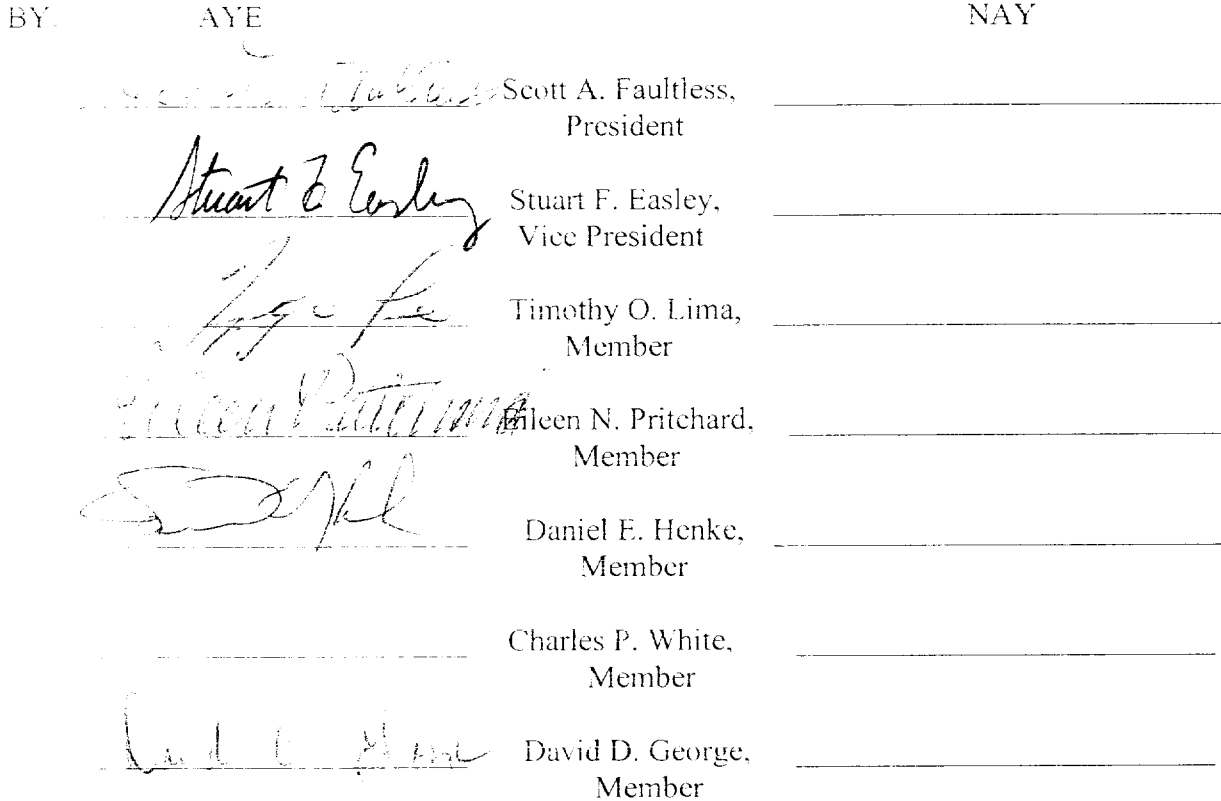 BY. AYE NAY
Scott A. Faultless,
President
Stuart F Easley Stuart F. Easley,
Vice President
Timothy O. Lima,
Member
Eileen Eileen N. Pritchard,
Member
Daniel E. Henke,
Member
Charles P. White,
Member
David D. George,
Member